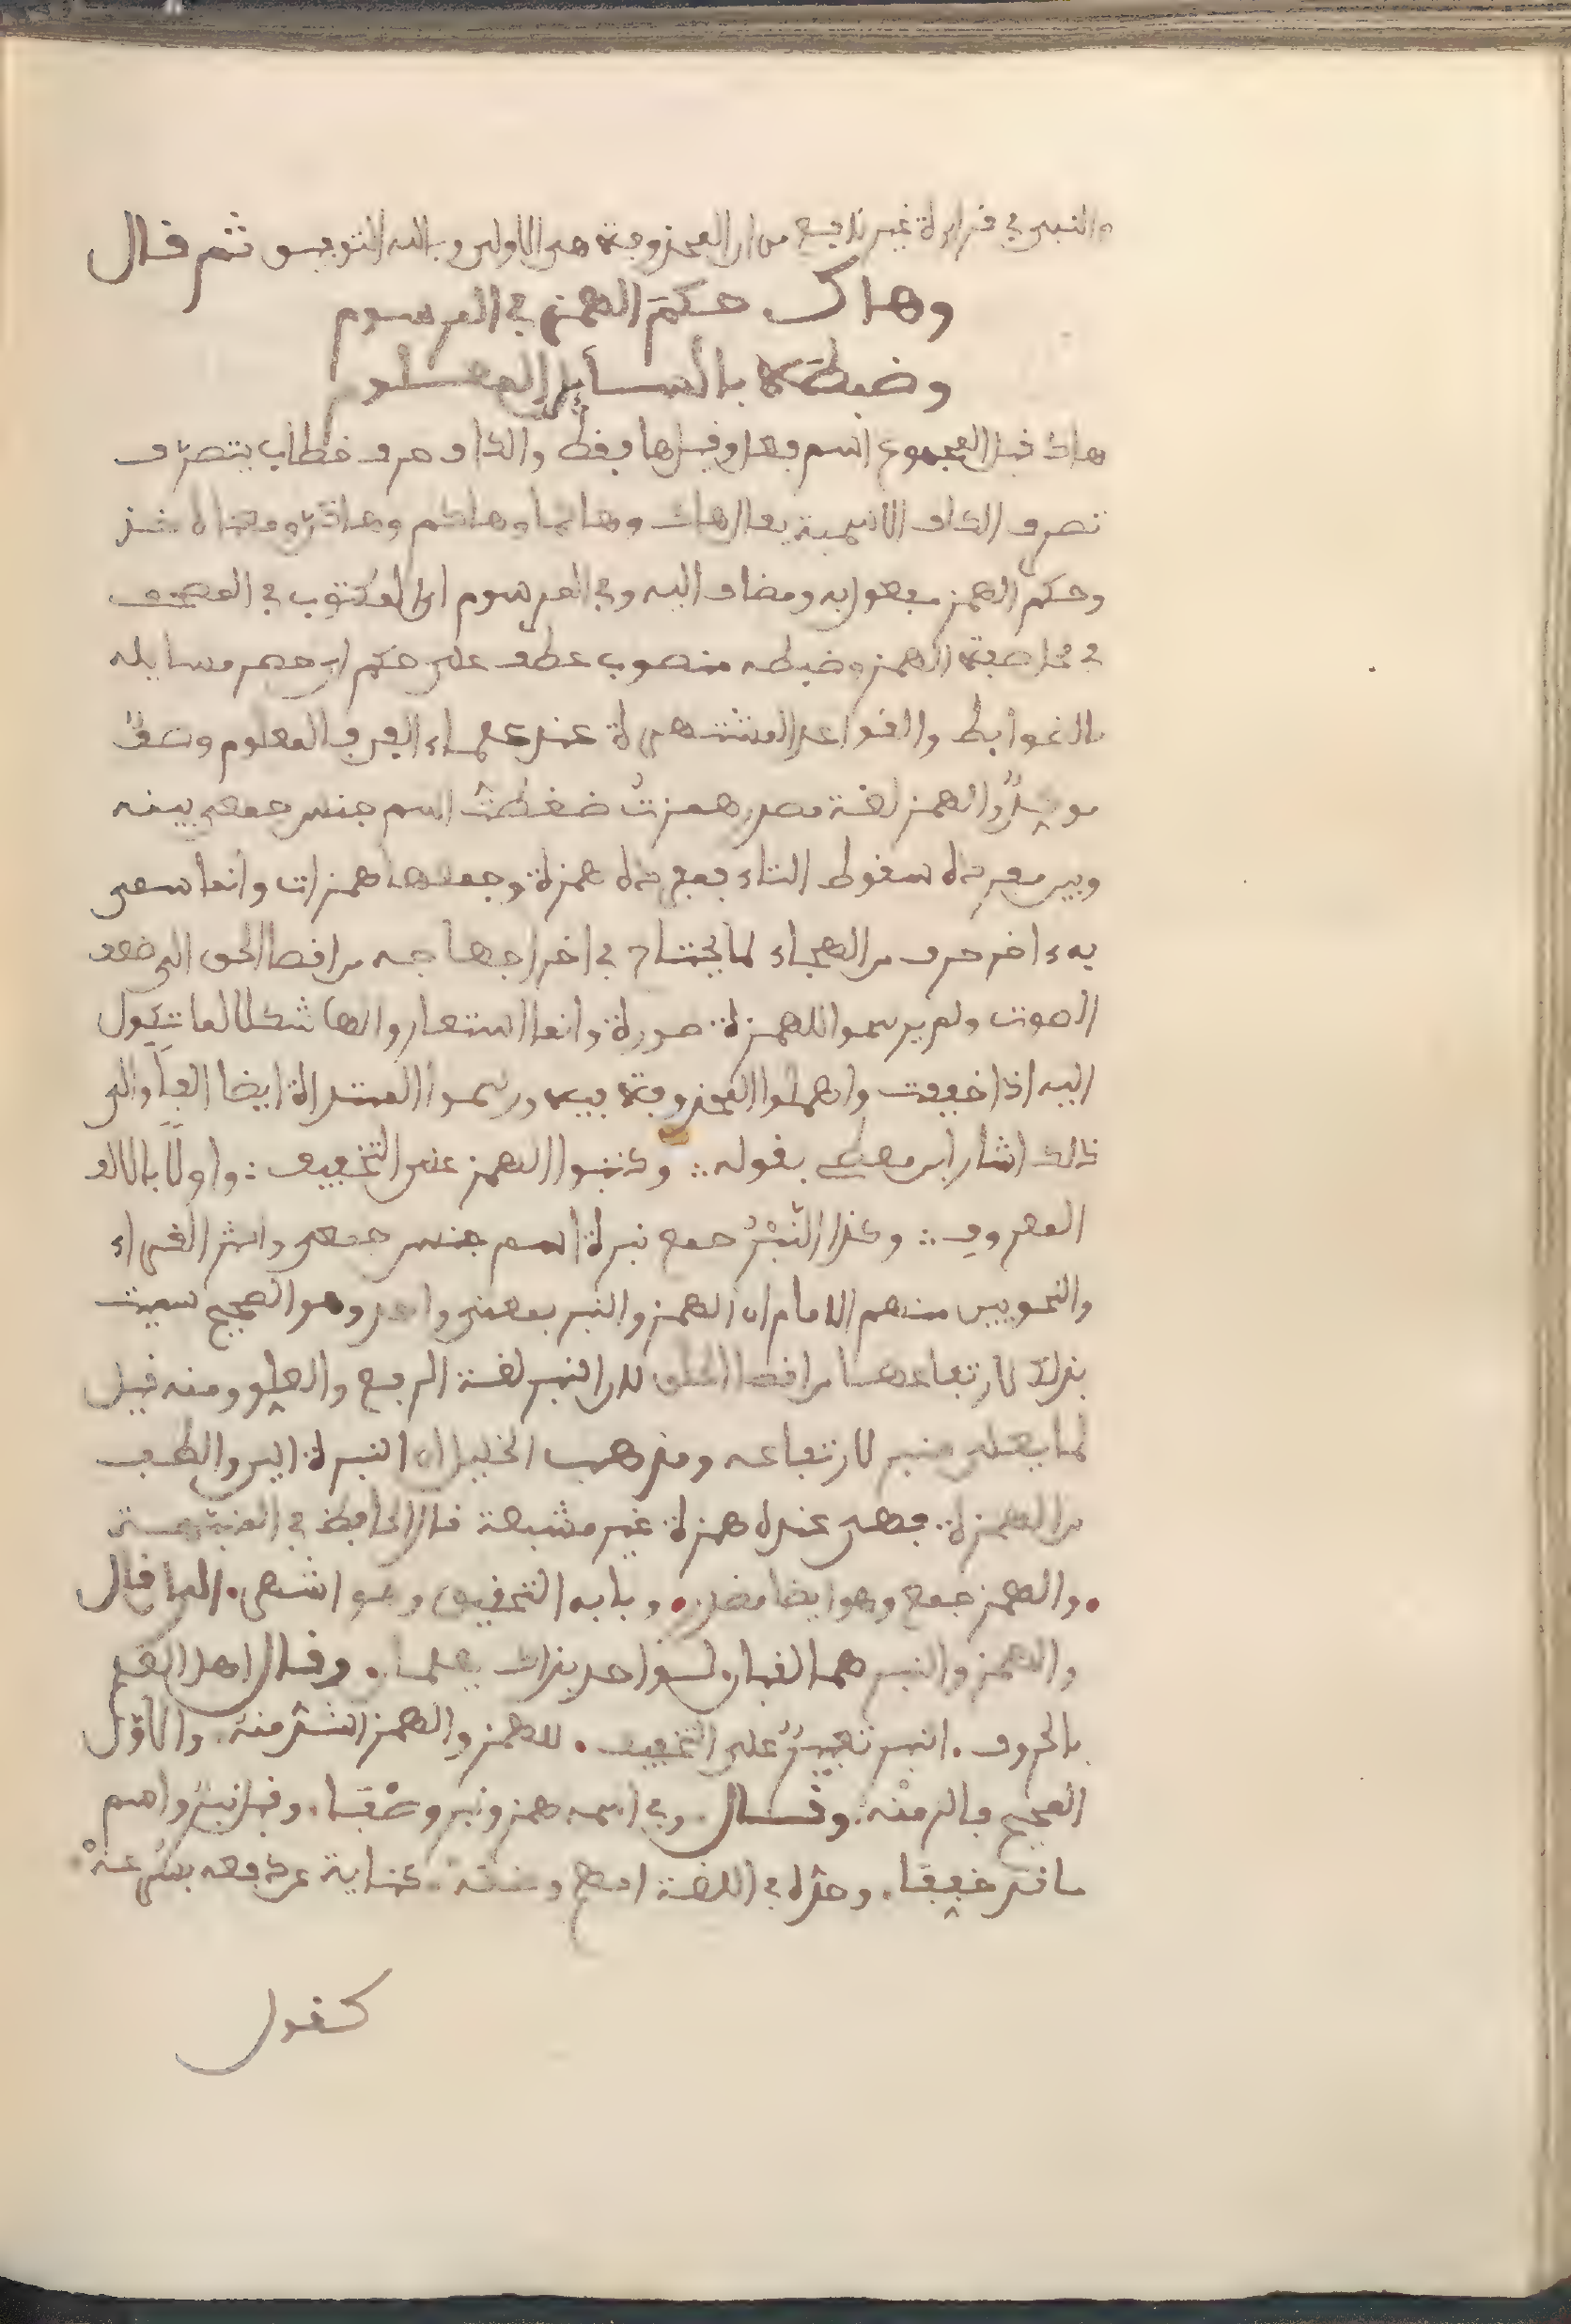 النبيء في قراءة غير نافع من ان المحذوفة هي الاولى وبالله التوفيق ثم قال
وهاك حكم الهمز في المرسوم
وضبطه بالسائر المعلوم
هاك قيل المجموع اسم فعل وقيل ها فقط والكاف حرف خطاب يتصرف
تصرف الكاف الاسمية يقال هاك وهاكما وهاكم وهاكن ومعناه خذ
وحكم الهمز مفعول به ومضاف اليه وفي المرسوم اي المكتوب في المصحف
في محل صفة الهمز وضبطه منصوب عطف على حكم اي حصر مسايله
بالضوابط والقواعد المشتهرة عند علماء الفن المعلوم
والهمز لغة مصدر همزت ضغطت اسم جنس جمعي بينه
وبين مفرده سقوط التاء فمفرده همزة وجمعها همزات وانما سمي
به ءاخر حرف من الهجاء لما يحتاج في اخراجها من اقصا الحلق الى ضغط
الصوت ولم يرسموا للهمزة صورة وانما استعاروا لها شكل ما تئول
اليه اذا خففت واهملوا المحذوفة فيه ورسموا المبتدأة ايضا الفا والى
ذلك اشار ابن معطي بقوله ∴ وكتبوا الهمز على التخفيف ∴ واولا بالالف
المعروف ∴ وكذا النبر جمع نبرة اسم جنس جمعي واكثر القراء
والنحويين منهم الامام ان الهمز والنبر بمعنى واحد وهو الصحيح سميت
بذلك لارتفاعها من اقصا الحلق لان النبر لغة الرفع والعلو ومنه قيل
لما يعلى منبر لارتفاعه ومذهب الخليل ان النبرة الين والطف
من الهمزة فهي عنده همزة غير مشبعة قال الحافظ في المنبهة
• والهمز جمع وهو ايضا مصدر • وبابه التحقيق وهو اشهر • الى ان قال
والهمز والنبر هما لقبان لواحد بذاك يعلمان • وقال اهل العلم
بالحروف • النبر تعبير على التخفيف • للهمز والهمز اشد منه • والاول
الصحيح فالزمنه • وقال • وفي اسمه همز ونبر وحققا • وقيل نبر اسم
ما قد خففا • وحده في اللغة ادفع وضغه • كناية عن دفعه بسرعه
كقول